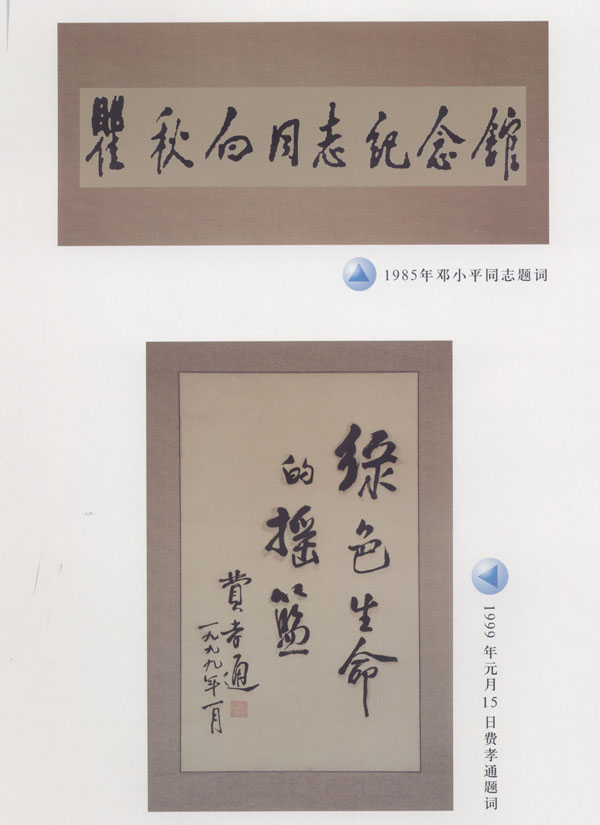 瞿秋白同志纪念馆
1985年邓小平同志题词
绿色生命
的摇篮
费孝通
一九九九年一月
1999年元月15日费孝通题词